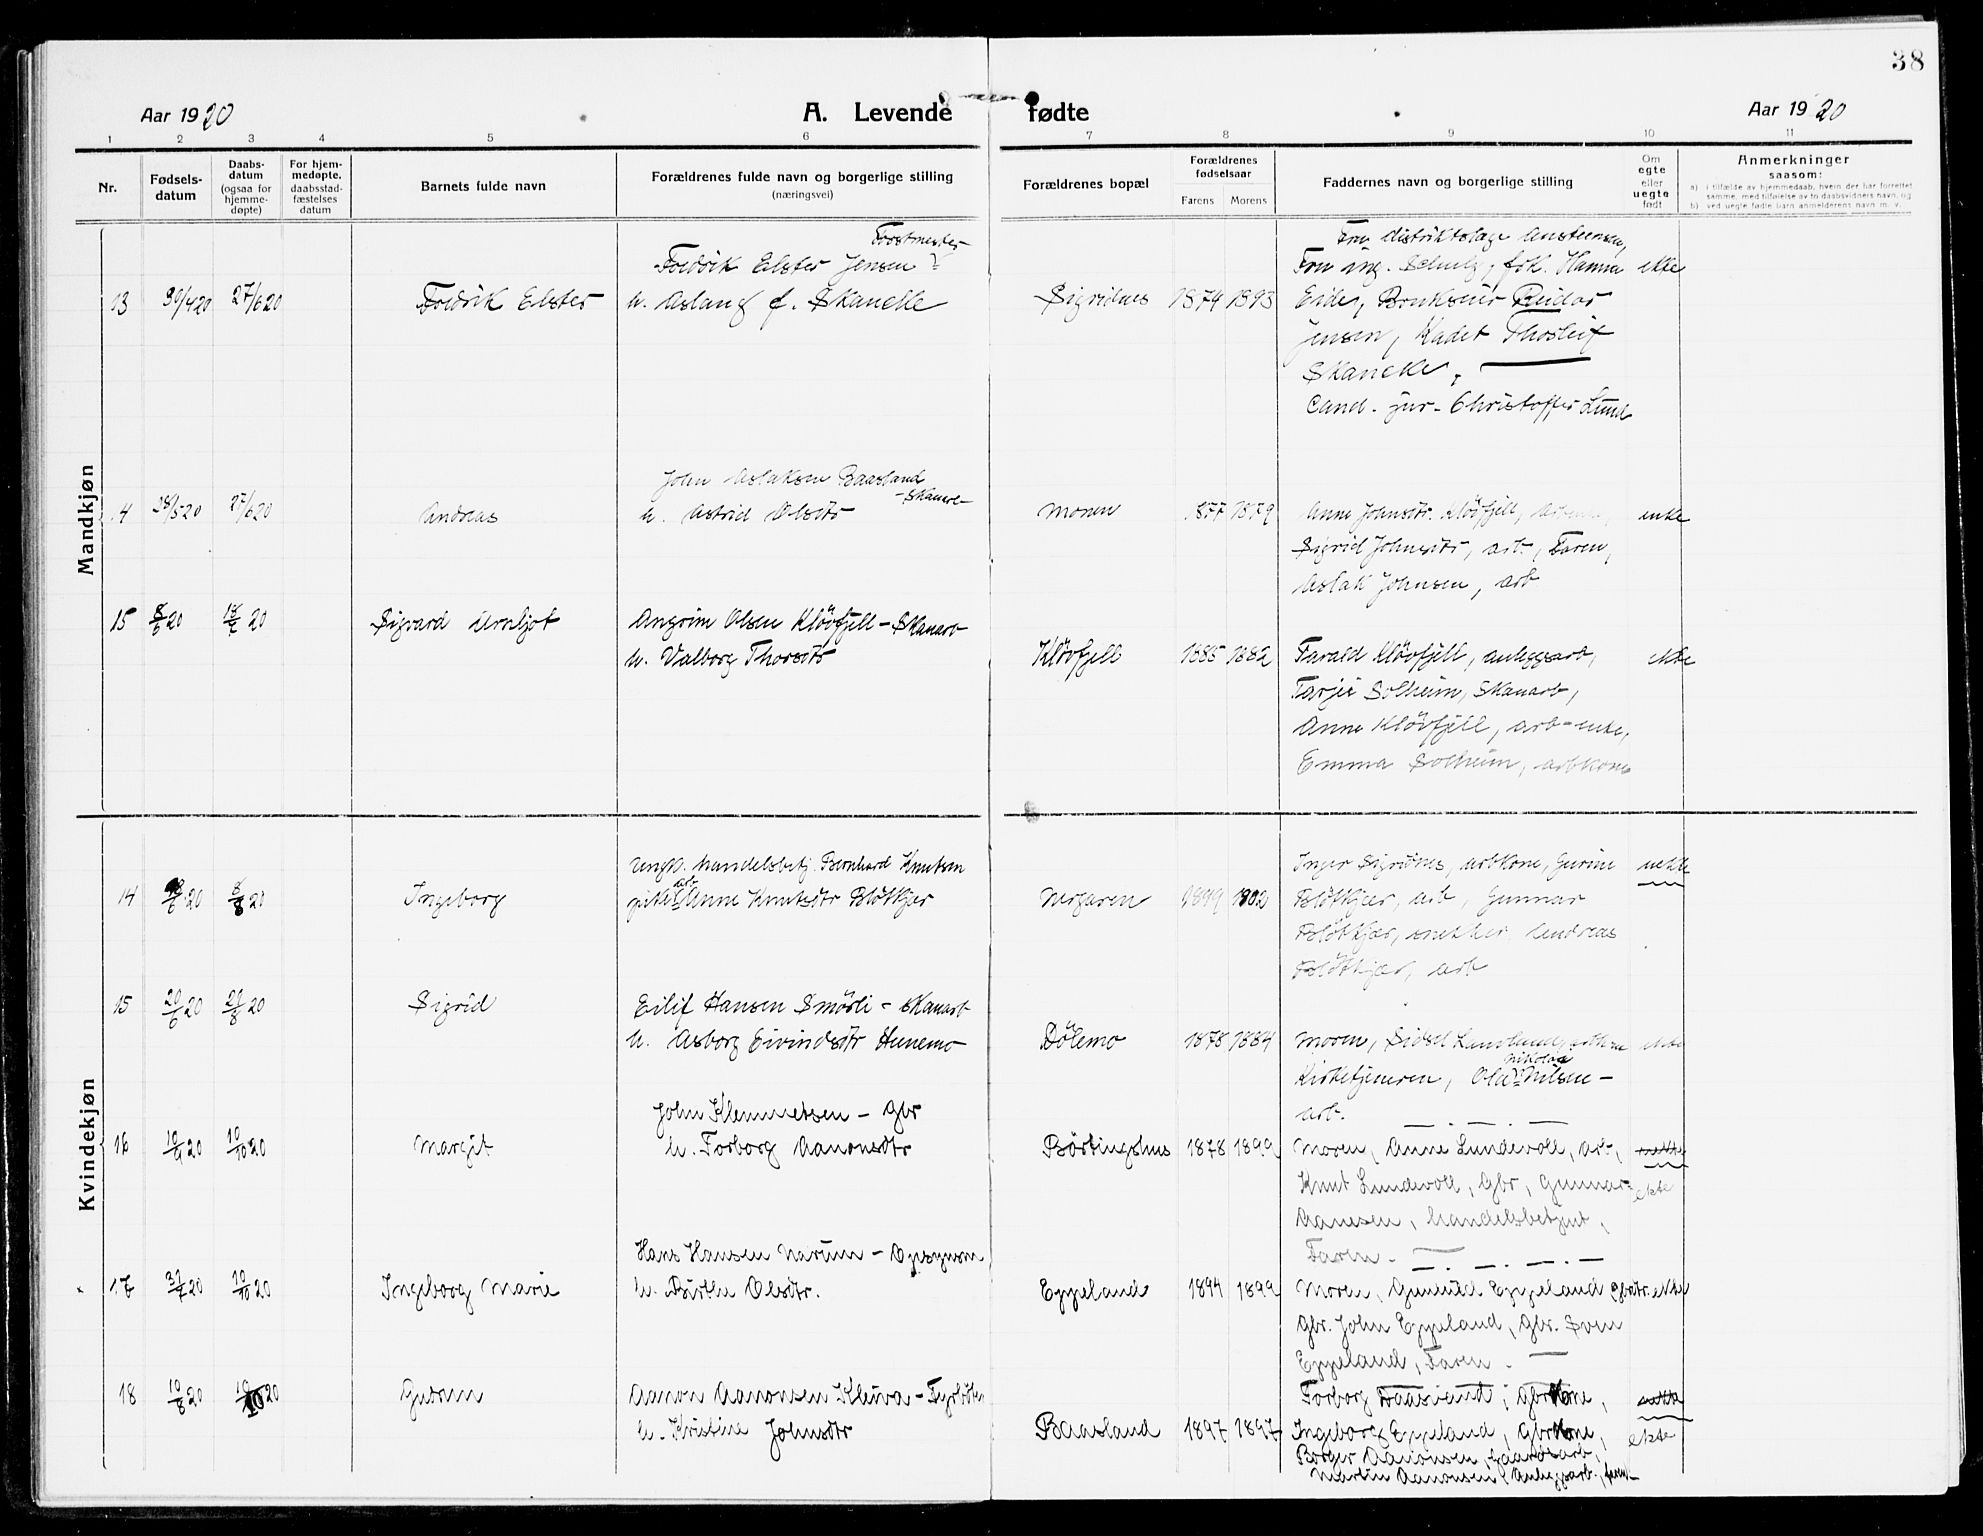 38
Aar 1920 A. Levende fødte Aar 1920
1 2 3 4 5 6 7 8 9 10 11
Nr.
Fødsels-
datum
Daabs-
datum
(ogsaa for
hjemme-
døpte)
For hjem-
medøpte,
daabsstad-
fæstelses
datum
Barnets fulde navn
Forældrenes fulde navn og borgerlige stilling
(næringsvei)
Forældrenes bopæl
Forældrenes
fødselsaar
Farens Morens
Faddernes navn og borgerlige stilling
Om
egte
eller
uegte
født
Anmerkninger
saasom:
a) i tilfælde av hjemmedaab, hvem der har forrettet
samme, med tilføielse av to daabsvidners navn, og
b) ved uegte fødte barn anmelderens navn m. v.
Mandkjøn
13 30/4 20 27/6 20 Fredrik Elster
Forstmester
Fredrik Elster Jensen
h. Aslaug f. Skancke
Sigridnes 1879 1893
Fru distriktslæge
Fru ing. Schulz, frk. Hanna ekte
Eide, Reidar
Jensen, Kadet Thorleif
Skancke,
Cand. jur. Christoffer Lund
14 28/5 20 27/6 20 Andreas
John Aslaksen Baasland
h. Astrid Olsdtr
Monen 1877 1879
Anne Johnsdtr. Kløvfjell, ekte
Sigrid Johnsdtr, arb., Faren,
Aslak Johnsen, arb
15 8/6 20 20 Sigvard Arnljot
Angrim Olsen Kløvfjell - Skanarb
h. Valborg Thorsdtr
Kløvfjell 1885 1882
Tarald Kløvfjell, anleggsarb, ekte
Tarjei Solheim, Skanarb,
Anne Kløvfjell, arb-enke,
Emma Solheim, arbkone
Kvindekjøn
14 20 8/8 20 Ingeborg
Ungk. handelsbetj. Bernhard Knutsen
pike arb Anne Knutsdtr Bløtkjær
1899 1902
Inger Sigridnes, arbkone, Gurine uekte
Bløtkjær, arb, Gunnar
Bløtkjær, snekker, Andreas
Bløtkjær, arb
15 20/6 20 20 Sigrid
Eilif Hansen Smørli - Skanarb
h. Asborg Eivindsdtr Hunemo
Dølemo 1878 1884
Moren, Sidsel ekte
Kirketjeneren, Olav Nikolai Nilsen -
arb.
16 20 10/10 20 Margit
John Klemmetsen - Gbr
h. Torborg Aanonsdtr
Børtingshus 1878 1899
Moren, Anne Lundevoll, arb, uekte
Knut Lundevoll, Gbr, Gunnar ekte
Aanesen, handelsbetjent,
Faren.
17 31/7 20 10/10 20 Ingeborg Marie
Hans Hansen Narum - Opsynsm
h. Birthe Olsdtr.
Eppeland 1894 1899
Moren, Gunuld Eppeland gbrdtr. ekte
Gbr. John Eppeland, Gbr. Sven
Eppeland, Faren.
18 10/8 20 10/10 20 Gudrun
Aanon Aanonsen Kleiva - Fyrbøter
h. Kristine Johnsdtr
Baasland 1897 1897
Torborg Daasvand, Gbrkone, uekte
Ingeborg Eppeland, Gbrkone, ekte
Børger Aanonsen, Gaardsarb,
Martin Aanonsen, Anleggsarb.,